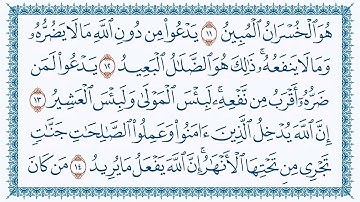 هُوَ ٱلْخُسْرَانُ ٱلْمُبِينُ ١١ يَدْعُوا۟ مِن دُونِ ٱللَّهِ مَا لَا يَضُرُّهُۥ
وَمَا لَا يَنفَعُهُۥ ۚ ذَٰلِكَ هُوَ ٱلضَّلَٰلُ ٱلْبَعِيدُ ١٢ يَدْعُوا۟ لَمَن
ضَرُّهُۥٓ أَقْرَبُ مِن نَّفْعِهِۦ ۚ لَبِئْسَ ٱلْمَوْلَىٰ وَلَبِئْسَ ٱلْعَشِيرُ ١٣
إِنَّ ٱللَّهَ يُدْخِلُ ٱلَّذِينَ ءَامَنُوا۟ وَعَمِلُوا۟ ٱلصَّٰلِحَٰتِ جَنَّٰتٍ
تَجْرِى مِن تَحْتِهَا ٱلْأَنْهَٰرُ ۚ إِنَّ ٱللَّهَ يَفْعَلُ مَا يُرِيدُ ١٤ مَن كَانَ